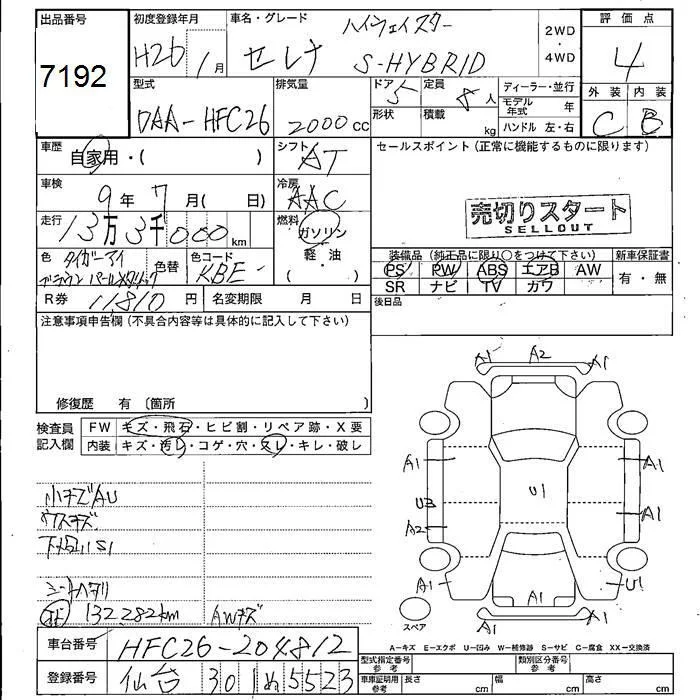 出品番号
7192
初度登録年月
H26年 1月
車名・グレード
ハイウェイスター
セレナ S-HYBRID
2WD
・
4WD
評価点
4
外装 内装
C B
型式
DAA-HFC26
排気量
2000cc
ドア 5
形状
定員 8人
積載 kg
ディーラー・並行
モデル年式 年
ハンドル 左・右
車歴
自家用・( )
シフト
AT
セールスポイント(正常に機能するものに限ります)
車検
9年 7月( 日)
冷房
AAC
売切りスタート
SELLOUT
走行
13万3千000km
燃料
ガソリン
軽・油
( )
色 タイガーアイ
ブラウンパールメタリック
色替
色コード
KBE-
装備品(純正品に限り○をつけて下さい)
PS PW ABS エアB AW
SR ナビ TV カワ
新車保証書
有・無
R券 11810円
名変期限 月 日
後日品
注意事項申告欄(不具合内容等は具体的に記入して下さい)
修復歴 有 〔箇所 〕
検査員
記入欄
FW キズ・飛石・ヒビ割・リペア跡・X要
内装 キズ・汚レ・コゲ・穴・スレ・キレ・破レ
小キズAU
ウスキズ
下廻りS1
シートヘタリ
132,282km AWキズ
A1 A2 A1
A1 A1
U1
U3
A1
A2
A1 A1 U1
A1 A1
スペア
A−キズ E−エクボ U−凹み W−補修跡 S−サビ C−腐食 XX−交換済
車台番号
HFC26-204812
登録番号
仙台 301 ぬ 5523
型式指定番号
参考
類別区分番号
参考
車庫証明用
参考
長さ cm
幅 cm
高さ cm